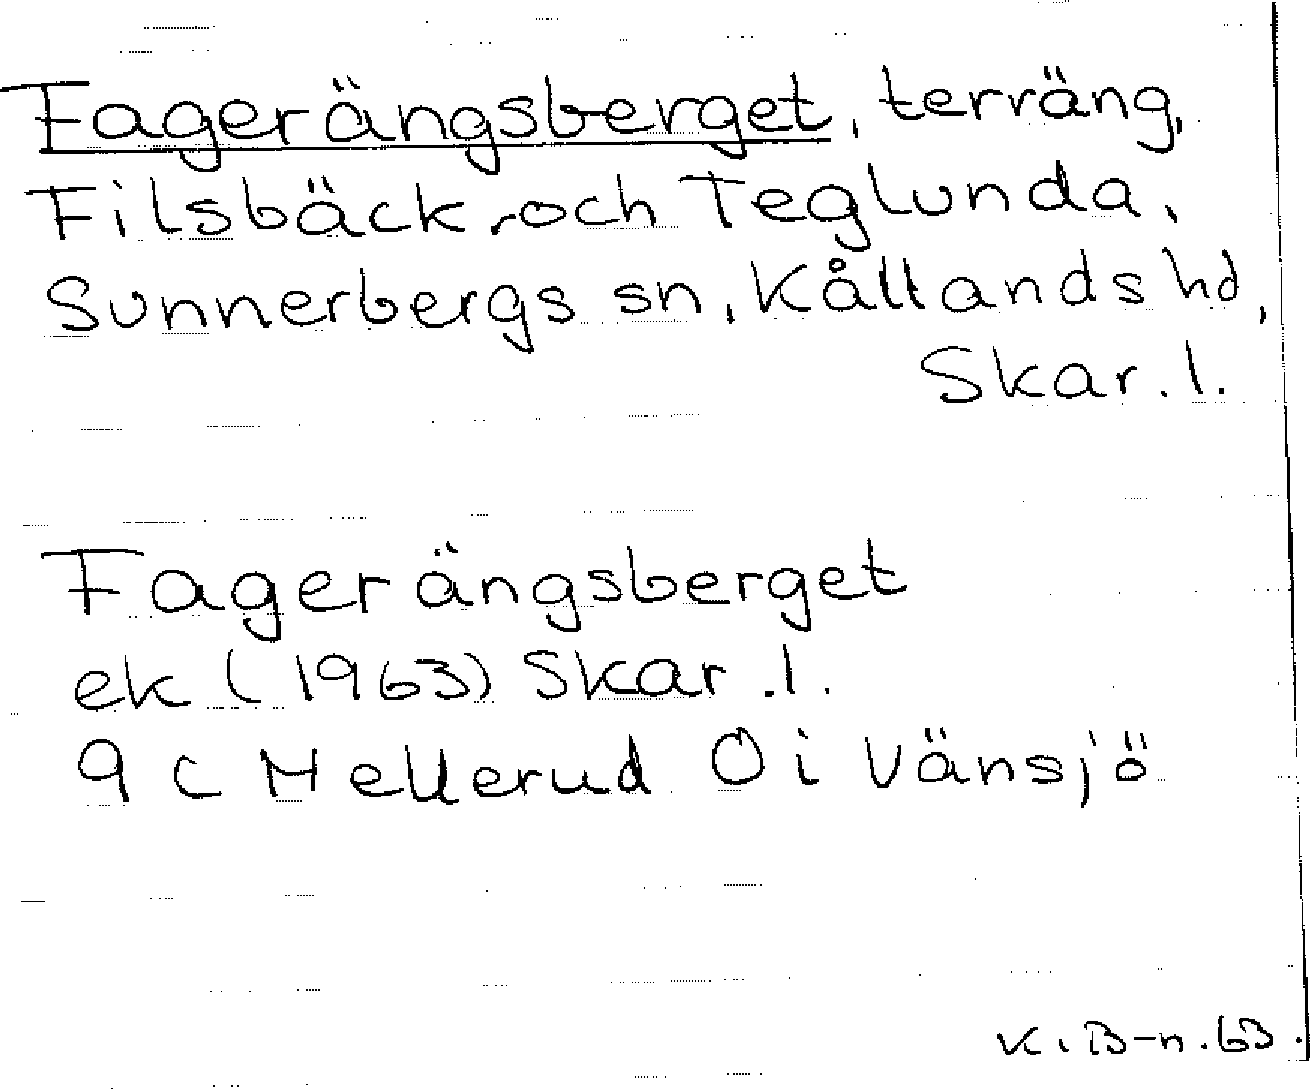 Fagerängsberget, terräng,
Filsbäck och Teglunda,
Sunnerbergs sn, Kållands hd,
Skar. l.
Fagerängsberget
ek (1963) Skar. l.
9 C Mellerud Ö i Vänsjö
K. B-n. 63.